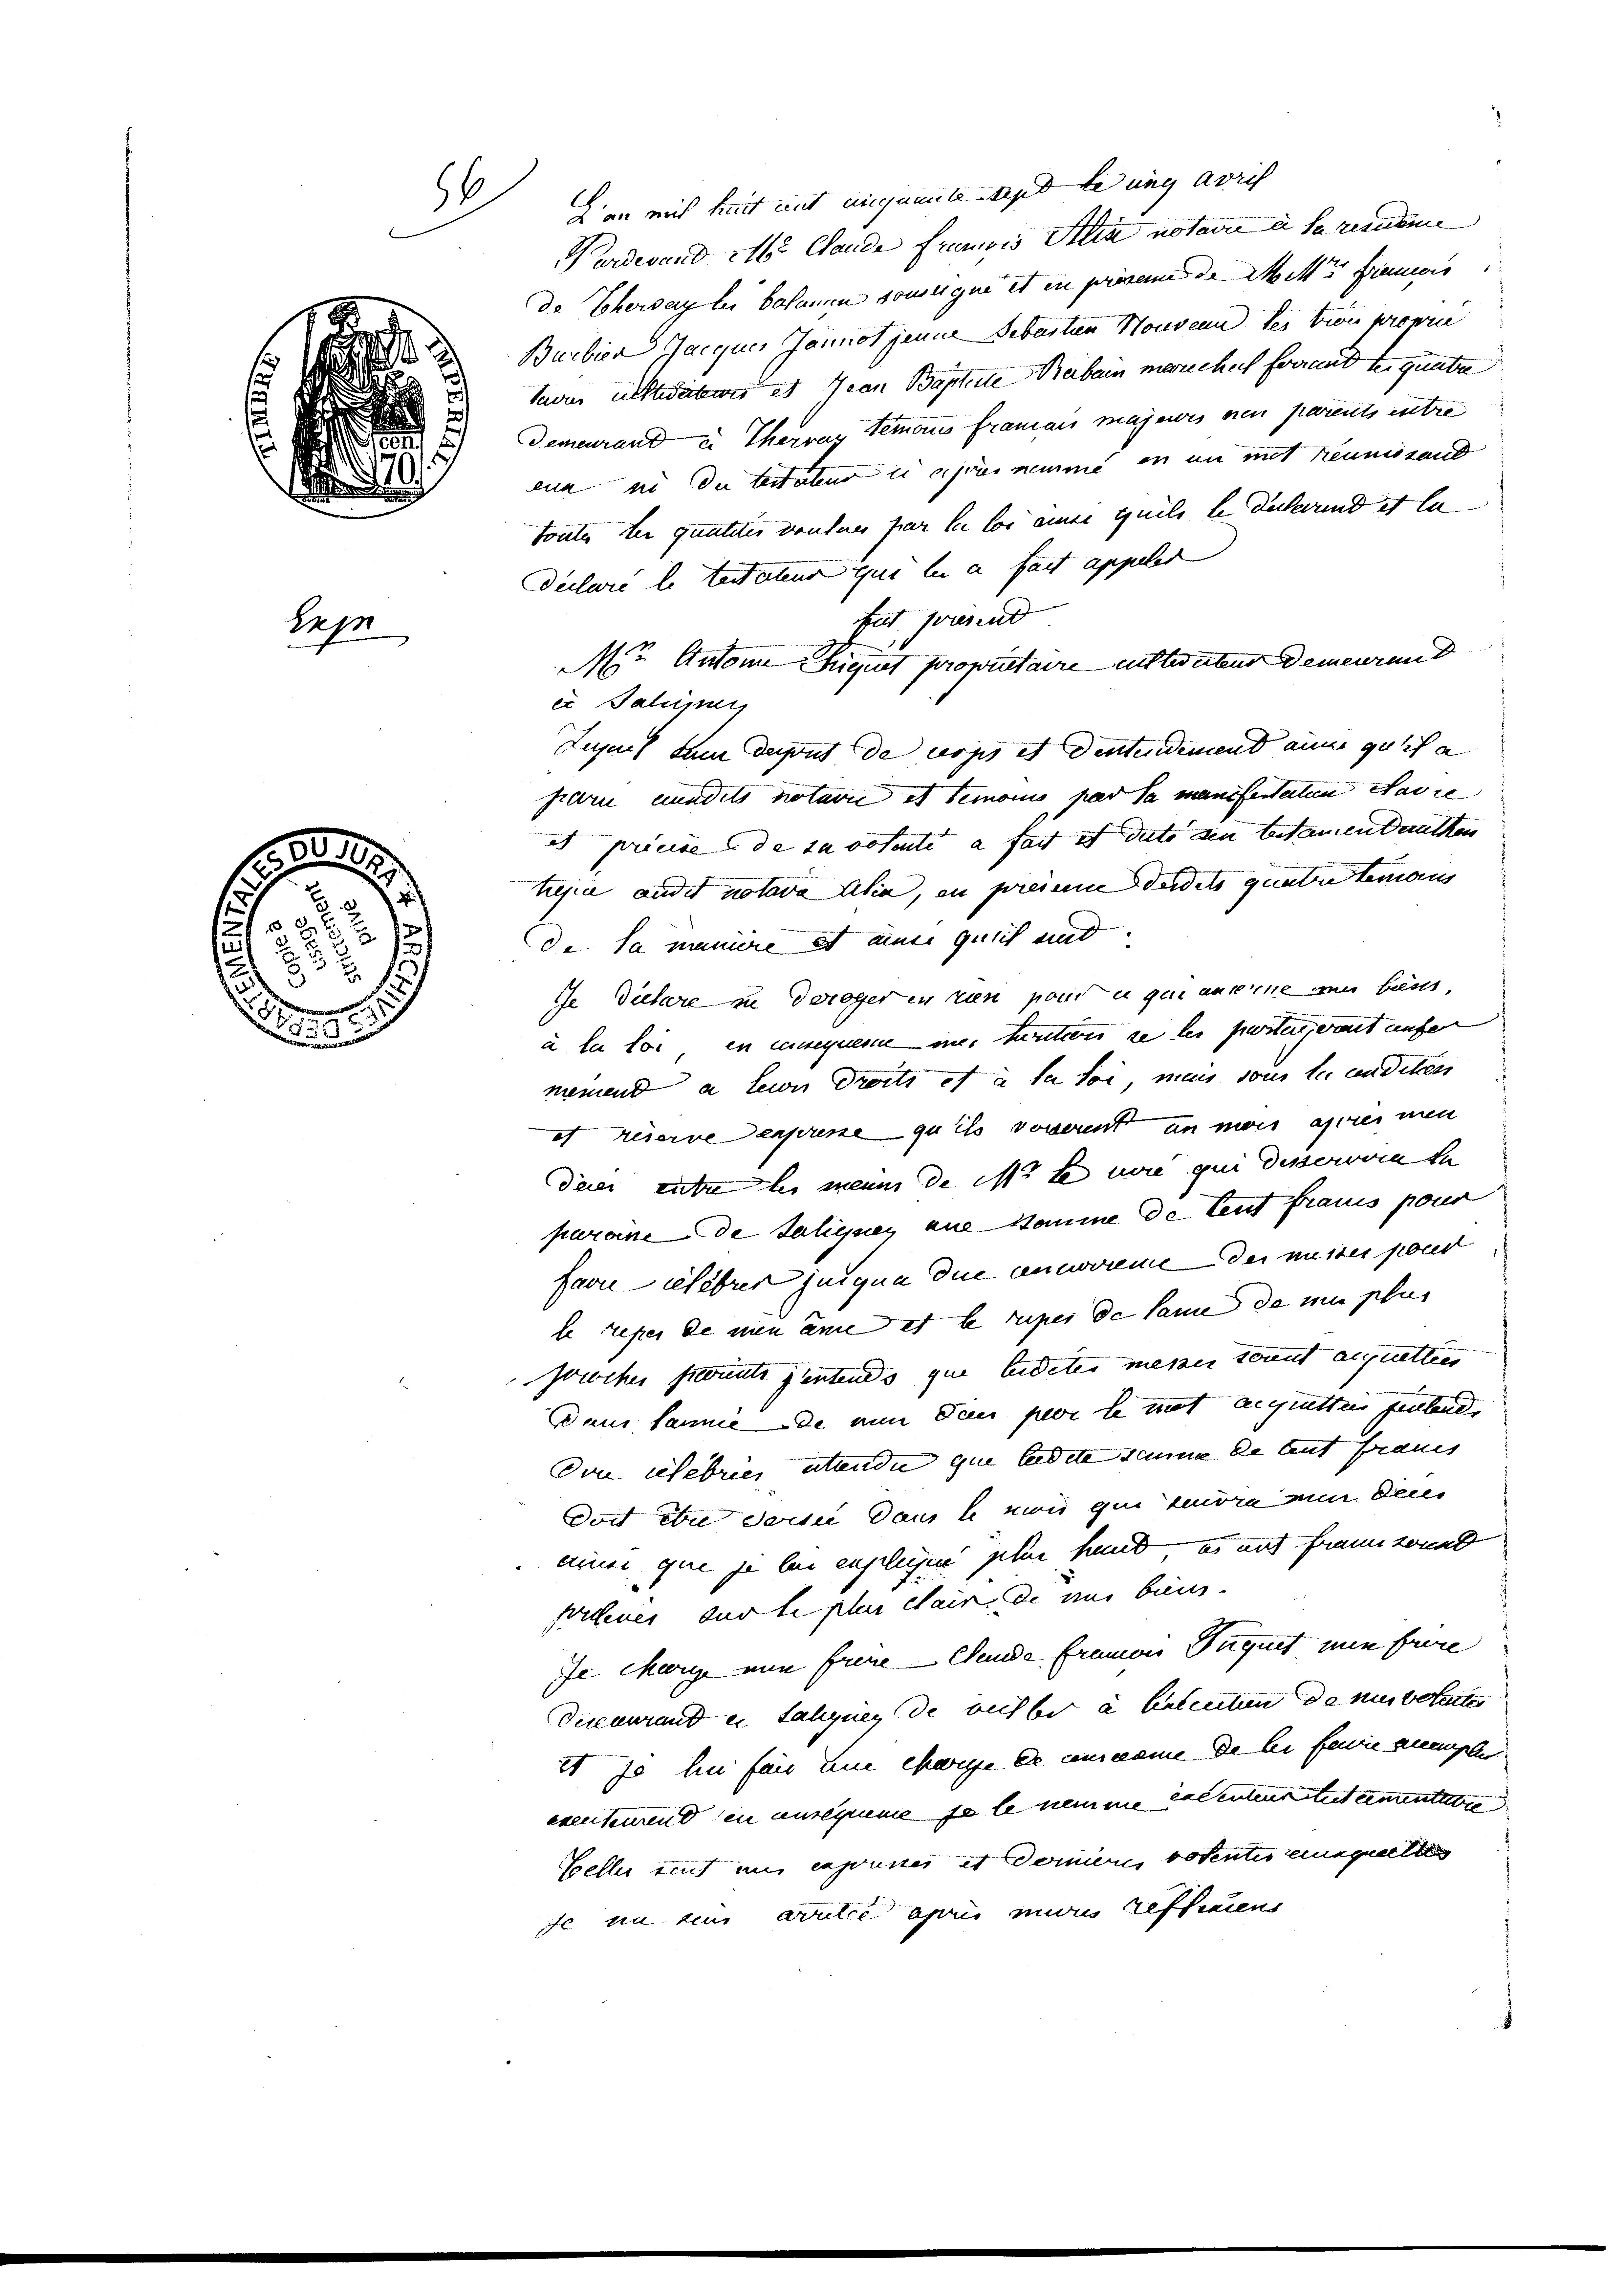 56
L'an mil huit cent cinquante sept le cinq avril
Pardevand Mre Claude francois Alix notaire à la residence
de Thervay les balancon soussigné et en présence de MMrs francois
Barbier Jacques Jannot jeune Sebastien Nouveau les trois proprié
taires cultivateurs et Jean Baptiste Rabain marechal ferrand les quatre
demeurand à Thervay temoins francais majeurs non parents entre
eux ni du testateur ci apres nommé en un mot reunissand
toutes les qualités voulues par la loi ainsi quils le declarend et la
declaré le testateur qui les a fait appeler
fut présend
Mr Antoine Piquet proprietaire cultivateur demeurand
à Saligney
Lequel sain desprit de corps et dentendement ainsi qu'il a
paru auxdits notaire et temoins par la manifestation claire
et précise de sa volonté a fait et dicté son testament authen
tique audit notaire Alix, en présence desdits quatre temoins
de la manière et ainsi quil suit :
Je déclare ne deroger en rien pour ce qui concerne mes biens,
à la loi, en consequence mes heritiers se les partageront confor
mémend a leurs droits et à la loi, mais sous la condition
et réserve expresse qu'ils verseront un mois après mon
décès entre les mains de Mr le curé qui desservira la
paroisse de Saligney une somme de cent francs pour
faire célébrer jusqua due concurrence des messes pour
le repos de mon âme et le repos de lame de mes plus
proches parents jentends que lesdites messes soient acquittées
dans lannée de mon déces par le mot acquittées jentends
dire célébrées attendu que ladite somme de cent francs
doit être versée dans le mois qui suivra mon déces
ainsi que je lai expliqué plus haud, ces cent francs seront
prélevés sur le plus clair de mes biens.
Je charge mon frere Claude francois Piquet mon frere
demeurand à Saligney de veiller à lexécution de mes volontés
et je lui fais une charge de conscience de les faire accomplir
exactemend en consequence je le nomme exécuteur testamentaire
Telles sont mes expresses et dernieres volontés auxquelles
je me suis arrêté après mures reflexions
Expn
TIMBRE IMPERIAL
70c
ARCHIVES DEPARTEMENTALES DU JURA
Copie à usage strictement privé